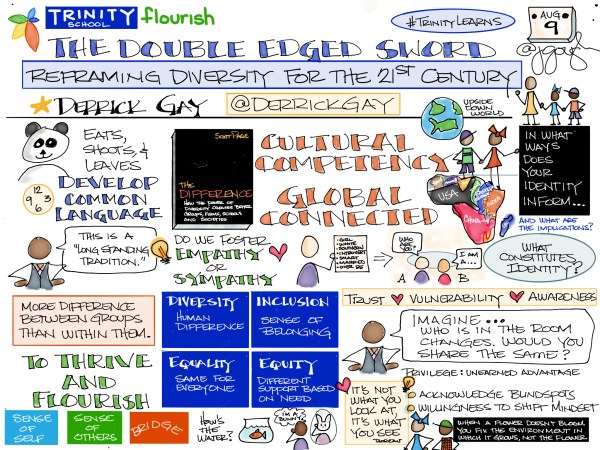 TRINITY
SCHOOL
flourish
#TRINITYLEARNS
AUG
9
@jgough
THE DOUBLE EDGED SWORD
REFRAMING DIVERSITY FOR THE 21ST CENTURY
DERRICK GAY @DERRICKGAY
UPSIDE
DOWN
WORLD
EATS,
SHOOTS, &
LEAVES
12
9 3
6
DEVELOP
COMMON
LANGUAGE
SCOTT PAGE
THE
DIFFERENCE
HOW THE POWER OF
DIVERSITY CREATES BETTER
GROUPS, FIRMS, SCHOOLS
AND SOCIETIES
CULTURAL
COMPETENCY
GLOBAL
CONNECTED
USA
INDIA
CHINA
IN WHAT
WAYS
DOES
YOUR
IDENTITY
INFORM...
AND WHAT ARE
THE IMPLICATIONS?
THIS IS A
"LONG STANDING
TRADITION."
DO WE FOSTER
EMPATHY
OR
SYMPATHY
• GIRL
• WHITE
• SOUTHERN
• INTROVERT
• SMART
• MARRIED
• OVER 50
WHO
ARE
YOU?
I AM
A...
A B
WHAT
CONSTITUTES
IDENTITY?
MORE DIFFERENCE
BETWEEN GROUPS
THAN WITHIN THEM.
DIVERSITY
HUMAN
DIFFERENCE
INCLUSION
SENSE OF
BELONGING
EQUALITY
SAME FOR
EVERYONE
EQUITY
DIFFERENT
SUPPORT BASED
ON NEED
TRUST VULNERABILITY AWARENESS
IMAGINE...
WHO IS IN THE ROOM
CHANGES. WOULD YOU
SHARE THE SAME?
PRIVILEGE: UNEARNED ADVANTAGE
ACKNOWLEDGE BLINDSPOTS
WILLINGNESS TO SHIFT MINDSET
TO THRIVE
AND
FLOURISH
SENSE OF
SELF
SENSE OF
OTHERS
BRIDGE
HOW'S
THE
WATER?
I'M A
BUNNY!
IT'S NOT
WHAT YOU
LOOK AT,
IT'S WHAT
YOU SEE
THOREAU
WHEN A FLOWER DOESN'T BLOOM
YOU FIX THE ENVIRONMENT IN
WHICH IT GROWS, NOT THE FLOWER